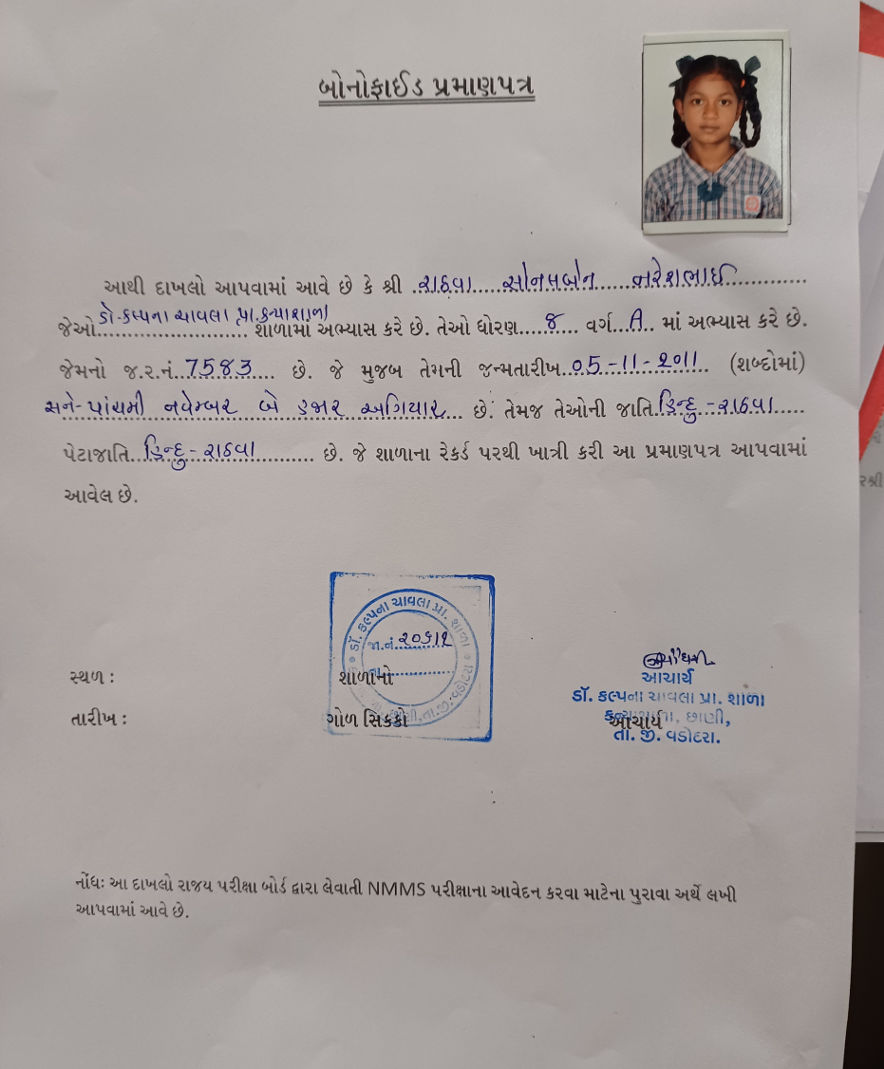 બોનોફાઈડ પ્રમાણપત્ર
આથી દાખલો આપવામાં આવે છે કે શ્રી .રાઠવા.....સોનલબેન.....નરેશભાઈ..............
જેઓ ડો-કલ્પના ચાવલા પ્રા.કન્યાશાળા શાળામાં અભ્યાસ કરે છે. તેઓ ધોરણ.....8..... વર્ગ...A... માં અભ્યાસ કરે છે.
જેમનો જ.ર.નં..7583.... છે. જે મુજબ તેમની જન્મતારીખ..05-11-2011.. (શબ્દોમાં)
સને-પાંચમી નવેમ્બર બે હજાર અગિયાર... છે. તેમજ તેઓની જાતિ..હિન્દુ-રાઠવા.....
પેટાજાતિ..હિન્દુ-રાઠવા.......... છે. જે શાળાના રેકર્ડ પરથી ખાત્રી કરી આ પ્રમાણપત્ર આપવામાં
આવેલ છે.
ડૉ. કલ્પના ચાવલા પ્રા. શાળા
જા.નં.
તા.જી.વડોદરા
સ્થળ :
શાળાનો
તારીખ :
ગોળ સિક્કો
આચાર્ય
ડૉ. કલ્પના ચાવલા પ્રા. શાળા
આચાર્ય
છાણી,
તા. જી. વડોદરા.
નોંધઃ આ દાખલો રાજય પરીક્ષા બોર્ડ દ્વારા લેવાતી NMMS પરીક્ષાના આવેદન કરવા માટેના પુરાવા અર્થે લખી
આપવામાં આવે છે.
રશ્રી